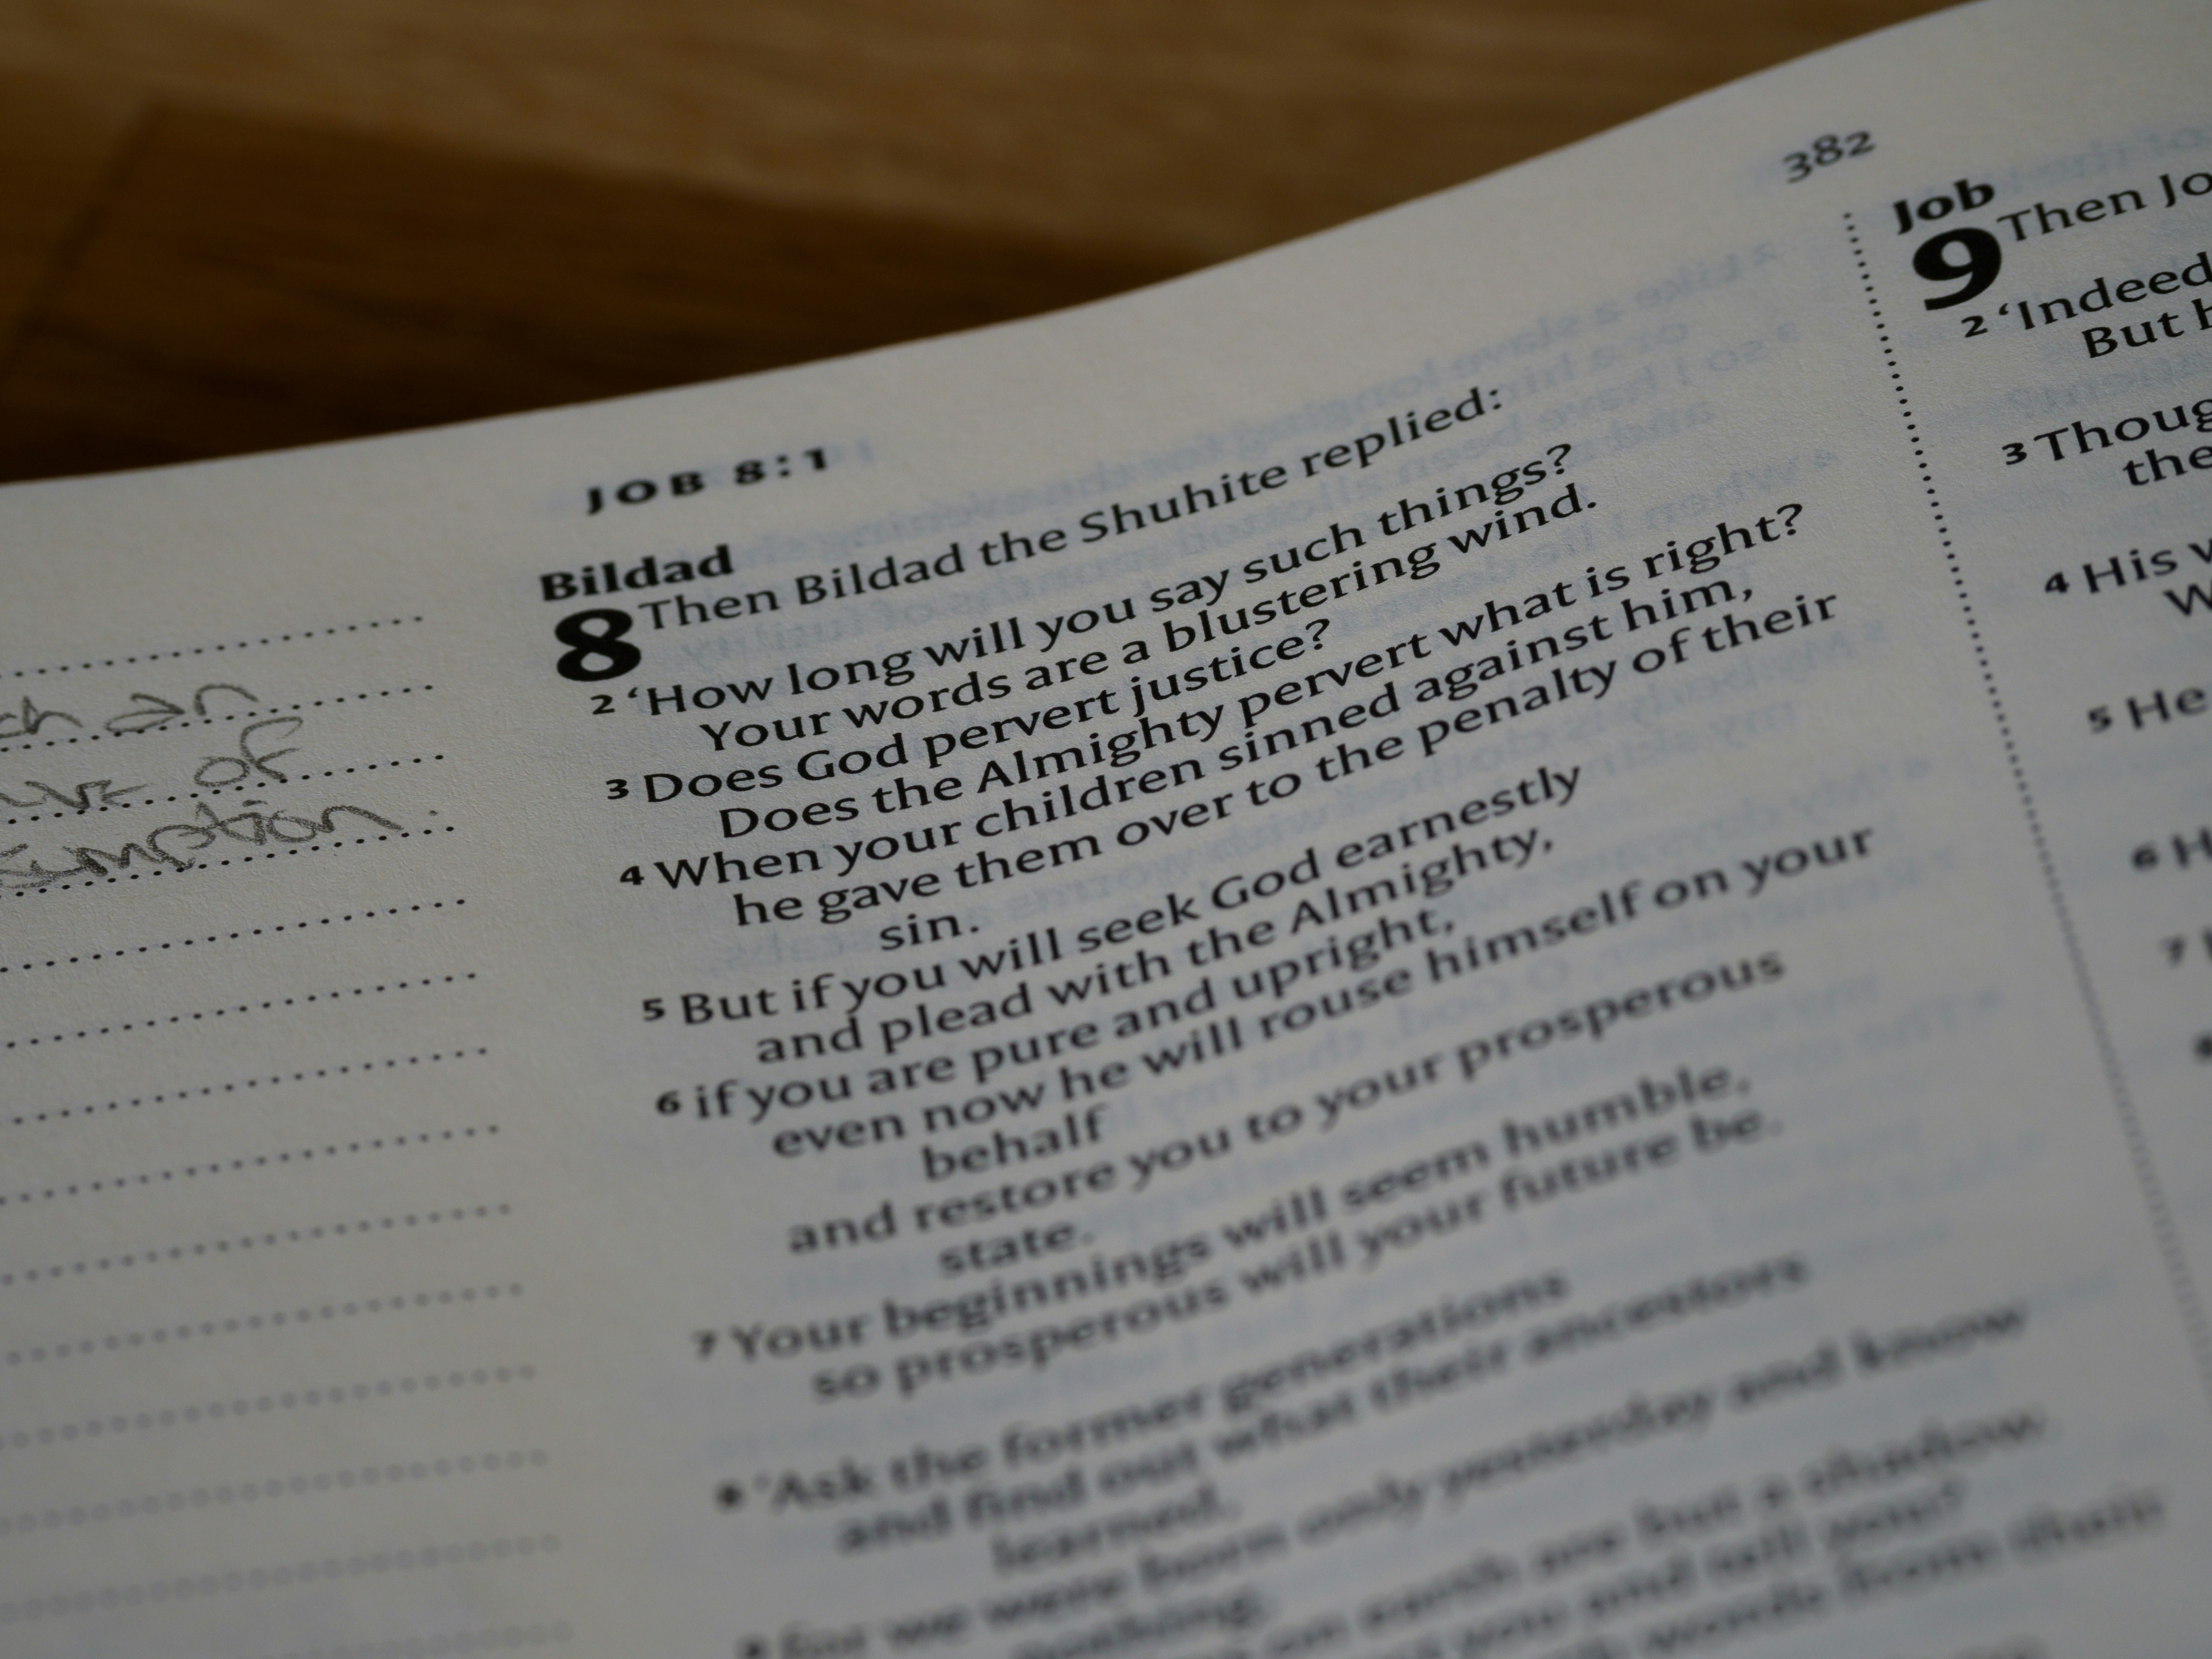 JOB 8:1
382
an
of
Bildad
8 Then Bildad the Shuhite replied:
2 ‘How long will you say such things?
Your words are a blustering wind.
3 Does God pervert justice?
Does the Almighty pervert what is right?
4 When your children sinned against him,
he gave them over to the penalty of their
sin.
5 But if you will seek God earnestly
and plead with the Almighty,
6 if you are pure and upright,
even now he will rouse himself on your
behalf
and restore you to your prosperous
state.
7 Your beginnings will seem humble,
so prosperous will your future be.
8 ‘Ask the former generations
and find out what their ancestors
learned,
9 for we were born only yesterday and know
nothing,
on earth are but a shadow.
you and tell you?
words from their
Job
9 Then Jo
2 ‘Indeed
But
3 Thoug
the
4 His
5 He
6 H
7